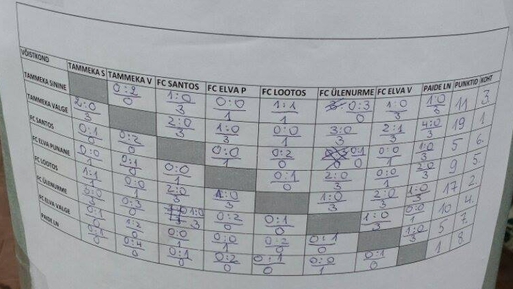 VÕISTKOND TAMMEKA S TAMMEKA V FC SANTOS FC ELVA P FC LOOTOS FC ÜLENURME FC ELVA V PAIDE LN PUNKTID KOHT
TAMMEKA SININE 0:2 0 1:0 3 0:0 1 1:1 1 0:3 0 1:0 3 1:0 3 11 3.
TAMMEKA VALGE 2:0 3 2:0 3 1:0 3 0:0 1 3:0 3 2:1 3 4:0 3 19 1.
FC SANTOS 0:1 0 0:2 0 0:0 1 0:2 0 0:0 1 1:0 3 5 6.
FC ELVA PUNANE 0:0 1 0:1 0 0:0 1 0:1 0 2:0 3 0:0 1 2:0 3 9 5.
FC LOOTOS 1:1 1 0:0 1 2:0 3 1:0 3 1:0 3 2:0 3 1:0 3 17 2.
FC ÜLENURME 0:3 0 1:0 3 0:2 0 0:1 0 1:0 3 0:0 1 10 4.
FC ELVA VALGE 0:1 0 1:2 0 0:0 1 0:0 1 0:2 0 0:1 0 1:0 3 5 7.
PAIDE LN 0:1 0 0:4 0 0:1 0 0:2 0 0:1 0 0:0 1 0:1 0 1 8.